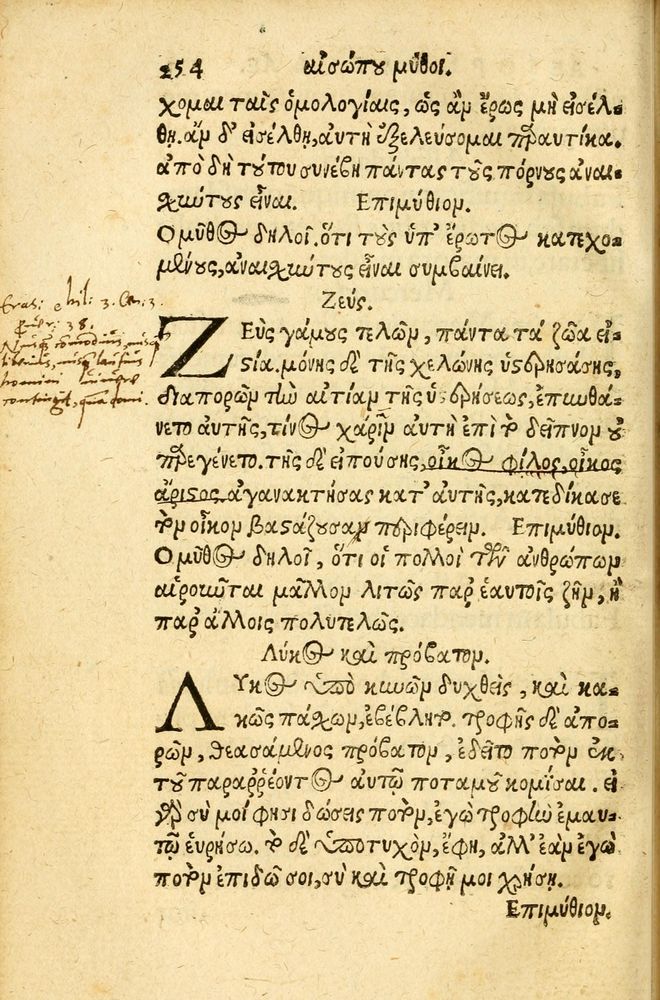 254 αἰσώπου μῦθοι.
χομαι ταῖς ὁμολογίαις, ὡς ἂν ἔρως μὴ εἰσέλ-
θῃ. ἂν δ' εἰσέλθῃ, αὐτὴ ἐξελεύσομαι παραυτίκα.
ἀπὸ δὴ τούτου συνέβη πάντας τοὺς πόρνους ἀναι-
σχύντους εἶναι. Επιμύθιον.
Ο μῦθος δηλοῖ. ὅτι τοὺς ὑπ' ἔρωτος κατεχο-
μένους, ἀναισχύντους εἶναι συμβαίνει.
Ζεύς.
ΖΕὺς γάμους τελῶν, πάντα τὰ ζῶα εἱ-
στία. μόνης δὲ τῆς χελώνης ὑστερησάσης,
διαπορῶν τὴν αἰτίαν τῆς ὑστερήσεως, ἐπυνθά-
νετο αὐτῆς, τίνος χάριν αὐτὴ ἐπὶ τὸ δεῖπνον οὐ
παρεγένετο. τῆς δὲ εἰπούσης, οἶκος φίλος, οἶκος
ἄριστος, ἀγανακτήσας κατ' αὐτῆς, κατεδίκασε
τὸν οἶκον βαστάζουσαν περιφέρειν. Επιμύθιον.
Ο μῦθος δηλοῖ, ὅτι οἱ πολλοὶ τῶν ἀνθρώπων
αἱροῦνται μᾶλλον λιτῶς παρ' ἑαυτοῖς ζῆν, ἢ
παρ' ἄλλοις πολυτελῶς.
Λύκος καὶ πρόβατον.
ΛΥκος ὑπὸ κυνῶν δηχθεὶς, καὶ κα-
κῶς πάσχων, ἐβέβλητο. τροφῆς δὲ ἀπο-
ρῶν, θεασάμενος πρόβατον, ἐδεῖτο ποτὸν ἐκ
τοῦ παραῤῥέοντος αὐτῷ ποταμοῦ κομίσαι. εἰ
γὰρ σύ μοί φησι δώσεις ποτὸν, ἐγὼ τροφὴν ἐμαυ-
τῷ εὑρήσω. τὸ δὲ ὑποτυχὸν, ἔφη, ἀλλ' ἐὰν ἐγὼ
ποτὸν ἐπιδῶ σοι, σὺ καὶ τροφῇ μοι χρήσῃ.
Επιμύθιον.
Eras: chil: 3. Cen: 3.
38.